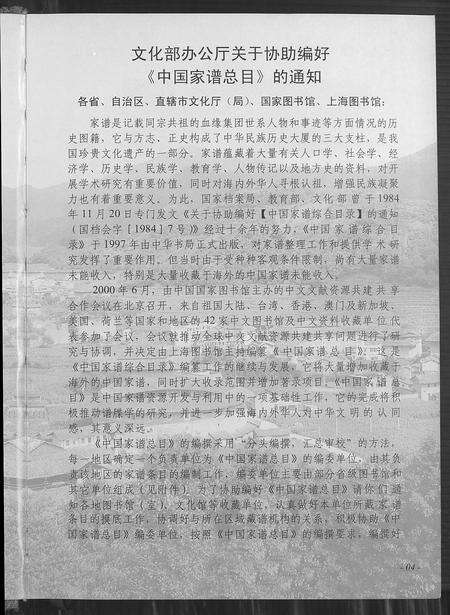 文化部办公厅关于协助编好
《中国家谱总目》的通知
各省、自治区、直辖市文化厅（局）、国家图书馆、上海图书馆：
家谱是记载同宗共祖的血缘集团世系人物和事迹等方面情况的历
史图籍，它与方志、正史构成了中华民族历史大厦的三大支柱，是我
国珍贵文化遗产的一部分。家谱蕴藏着大量有关人口学、社会学、经
济学、历史学、民族学、教育学、人物传记以及地方史的资料，对开
展学术研究有重要价值，同时对海内外华人寻根认祖，增强民族凝聚
力也有着重要意义。为此，国家档案局、教育部、文化部曾于1984
年11月20日专门发文《关于协助编好【中国家谱综合目录】的通知
（国档会字［1984］7号）》经过十余年的努力，《中国家谱综合目
录》于1997年由中华书局正式出版，对家谱整理工作和提供学术研
究发挥了重要作用。但当时由于受种种客观条件限制，尚有大量家谱
未能收入，特别是大量收藏于海外的中国家谱未能收入。
2000年6月，由中国国家图书馆主办的中文文献资源共建共享
合作会议在北京召开，来自祖国大陆、台湾、香港、澳门及新加坡、
美国、荷兰等国家和地区的42家中文图书馆及中文资料收藏单位代
表参加了会议，会议就推动全球中文文献资源共建共享问题进行了研
究与协调，并决定由上海图书馆主持编纂《中国家谱总目》。这是
《中国家谱综合目录》编纂工作的继续与发展，它将大量增加收藏于
海外的中国家谱，同时扩大收录范围并增加著录项目。《中国家谱总
目》是中国家谱资源开发与利用中的一项基础性工作，它的完成将积
极推动谱牒学的研究，并进一步加强海内外华人对中华文明的认同
感，其意义深远。
《中国家谱总目》的编撰采用“分头编撰，汇总审校”的方法，
每一地区确定一个负责单位为《中国家谱总目》的编委单位，由其负
责该地区的家谱条目的编制工作，编委单位主要由部分省级图书馆和
其它单位组成（见附件）。为了协助编好《中国家谱总目》请你们通
知各地图书馆（室）、文化馆等收藏单位，认真做好本单位所藏家谱
条目的摸底工作，协调好与所在区域藏谱机构的关系，积极协助《中
国家谱总目》编委单位，按照《中国家谱总目》的编撰要求，编撰好
- 04 -